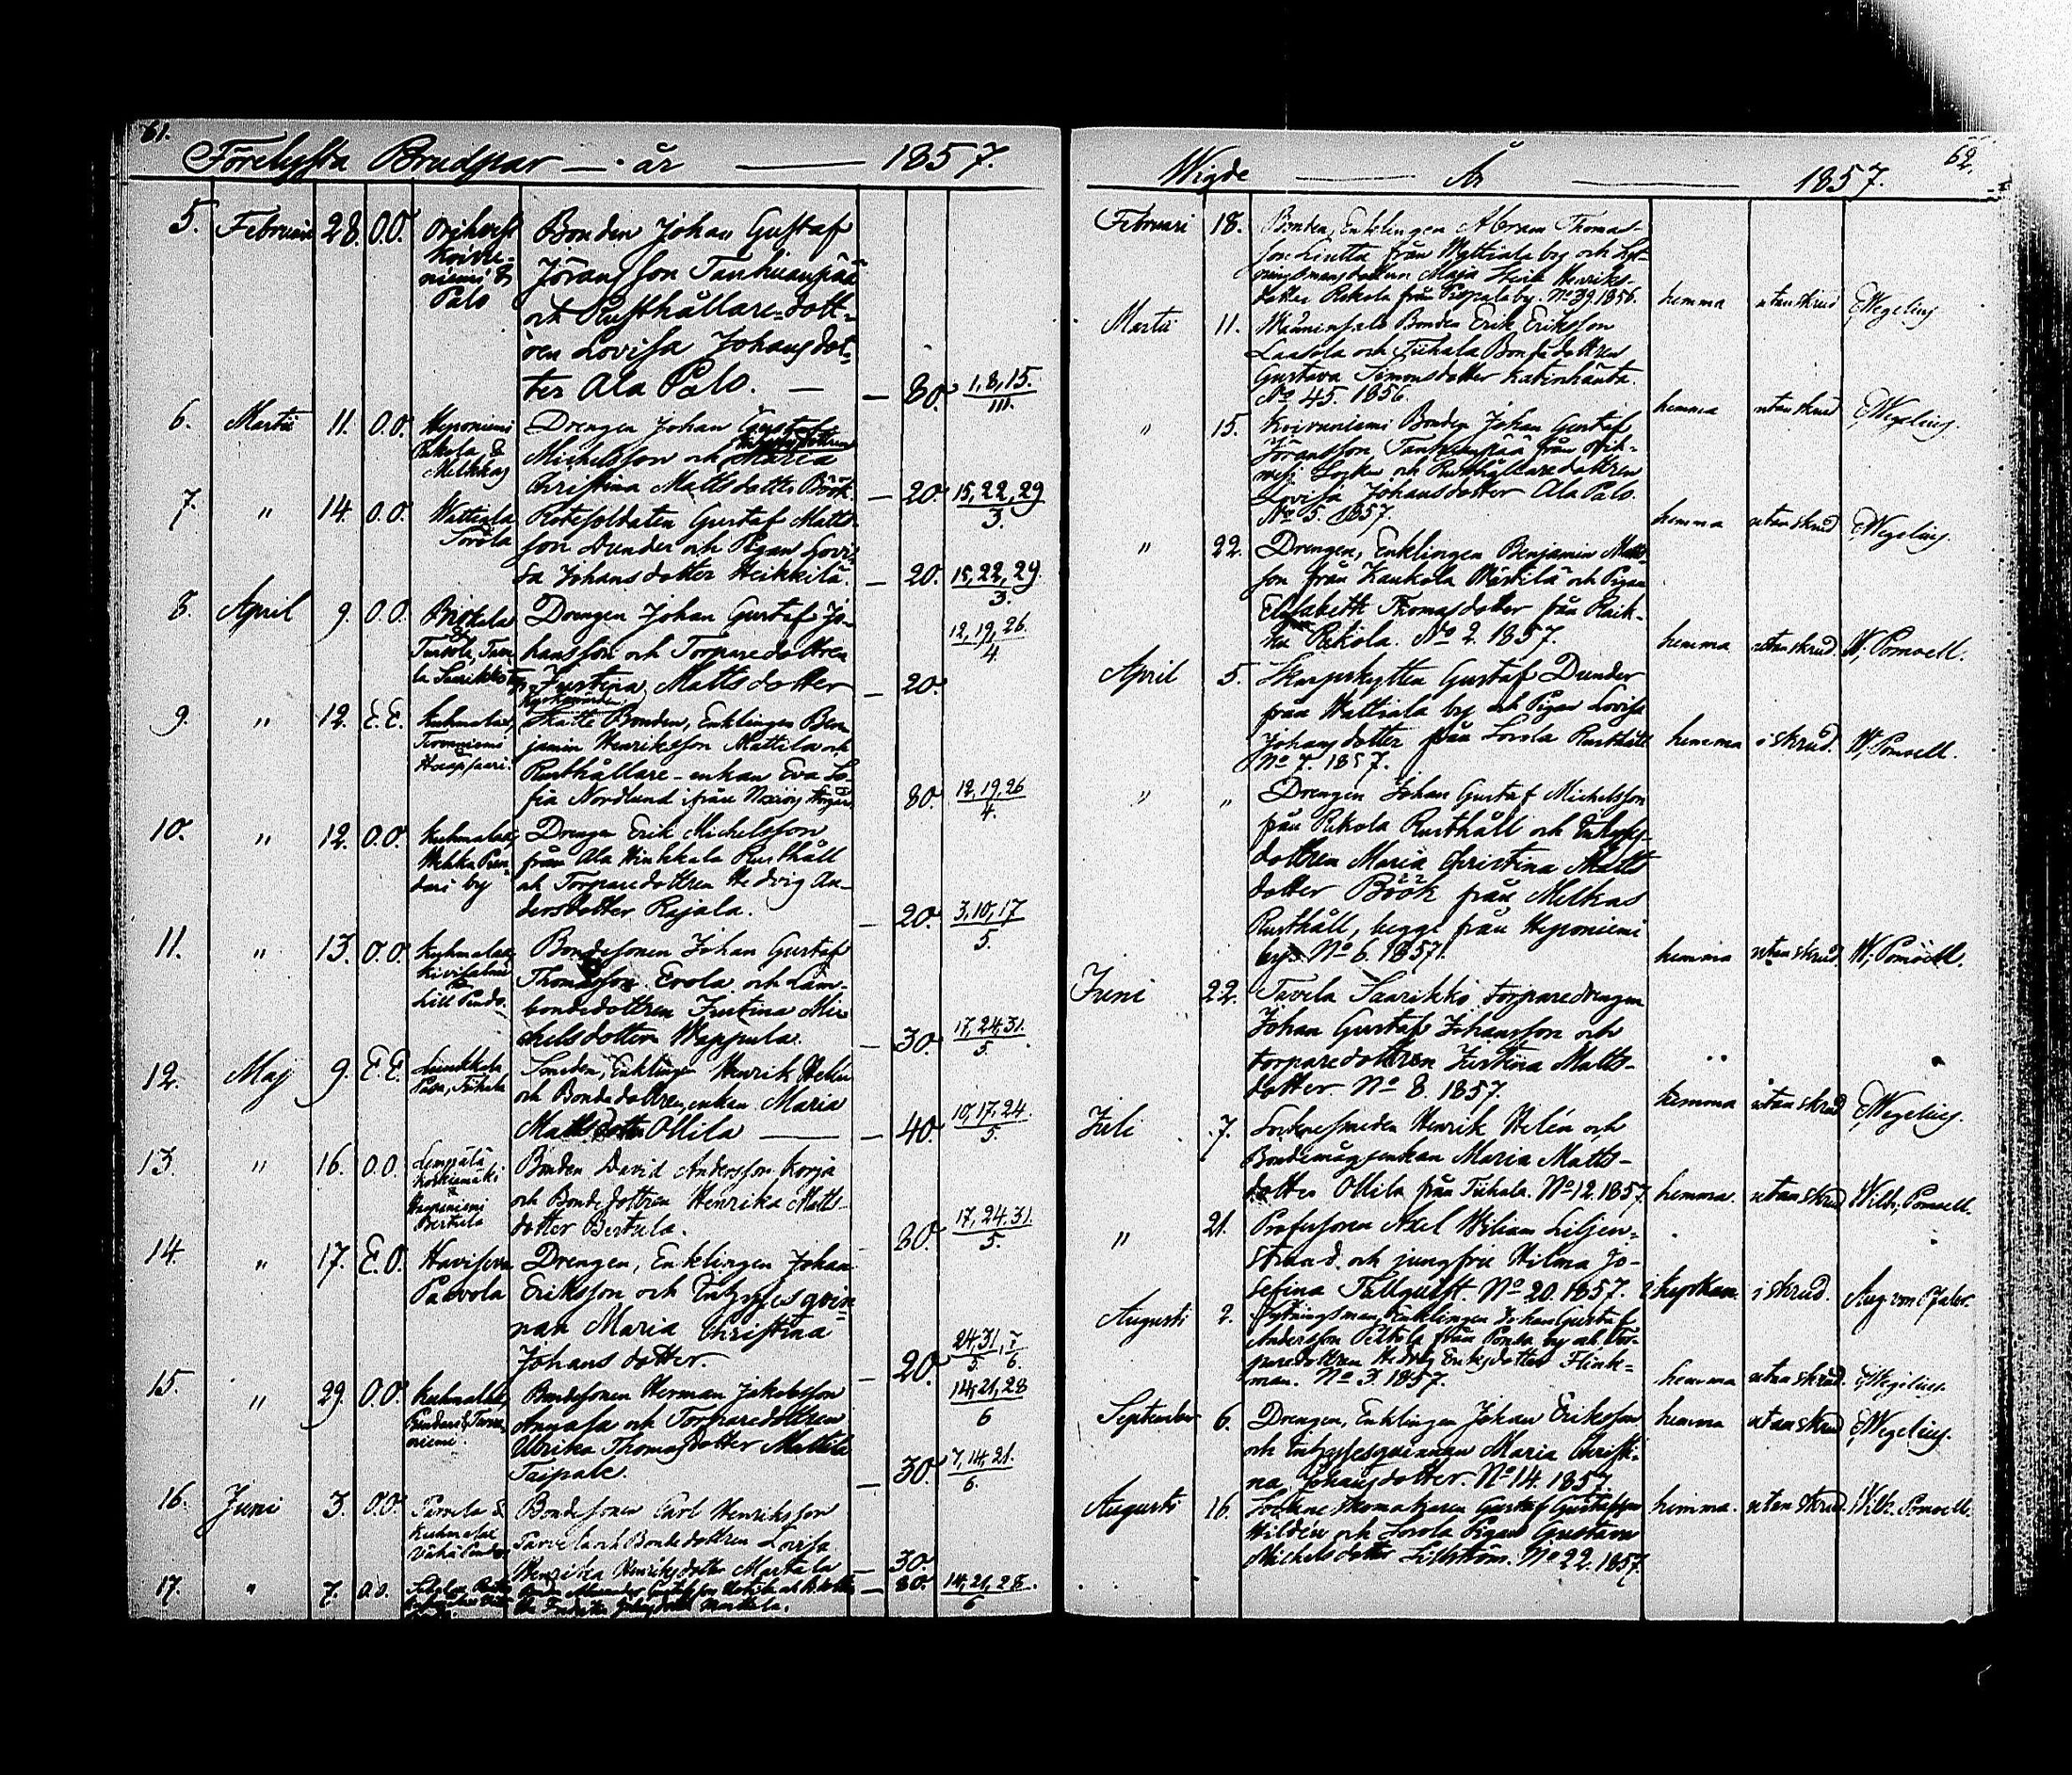 61.
Förelysta Brudpar — år — 1857.
5. Februari 28. O.O. Orihvesi
Koivu-
niemi &
Palo
Bonden Johan Gustaf
Jöransson Tankuanpää
och Rusthållare-dott-
ren Lovisa Johansdot-
ter Ala Palo. — — 80. 1, 8, 15.
III.
6. Martii 11. O.O. Heponiemi
Rekola &
Melkkas
Drengen Johan Gustaf
Inhyses dottren
Michelsson och Maria
Christina Matts dotter Böök. — 20. 15, 22, 29
3.
7. " 14. O.O. Wattiala
Sorola
Rotesoldaten Gustaf Matts-
son Dunder och Pigan Lovi-
sa Johans dotter Heikkilä. — 20. 15, 22, 29.
3.
8. April 9. O.O.
Drengen Johan Gustaf Jo-
hansson och Torparedottren
Justina Matts dotter — 20. 12, 19, 26
4.
9. " 12. E.E. Kuhmalax,
Skatte Bonden, Enklingen Ben-
jamin Henriksson Mattila och
Rusthållare-enkan Eva So-
fia Nordlund ifrån 80. 12, 19, 26
4.
10. " 12. O.O. Kuhmalax,
by
Drengen Erik Michelsson
från Ala Winkkala Rusthåll
och Torparedottren Hedvig An-
dersdotter Rajala. — 20. 3, 10, 17
5.
11. " 13. O.O. Kuhmalax,
Kivisalmi
&
Lill Pendo.
Bondesonen Johan Gustaf
Thomasson Evola och Lam-
bondedottren Justina Mi-
chelsdotter Wappula. — 30. 17, 24, 31.
5.
12. Maj 9. E.E. Liuckkala
Tiihala
Smeden, Enklingen Henrik Helén
och Bondedottren, enkan Maria
Mattsdotter Ollila — — 40. 10, 17, 24.
5.
13. " 16. O.O. Lempälä
Koskienmäki
&
Heponiemi
Bertula
Bonden David Andersson Korja
och Bondedottren Henrika Matts-
dotter Bertula. 80. 17, 24, 31.
5.
14. " 17. E.O. Haviseva
Paavola
Drengen, Enklingen Johan
Eriksson och Inhysesqvin-
nan Maria Christina
Johans dotter. — 20. 24, 31, 7
5. 6.
15. " 29. O.O. Kuhmalax,
Bondesonen Herman Jakobsson
Anyasa och Torparedottren
Ulrika Thomasdotter Mattila
Taipale. — 30. 14, 21, 28
6
7, 14, 21.
6.
16. Juni 3. O.O. Tarvela &
Kuhmalax
Vähä Pendo
Bondesonen Carl Henriksson
Tarvela och Bondedottren Lovisa
Henrika Henriksdotter Martala — 30.
17. " 7. O.O. — 80. 14, 21, 28.
6
62.
Wigde — År — 1857.
Februari 18. Bonden, Enklingen Abram Thomas-
son Liutta från Wattiala by och Lyt-
ningsmansdottren Maja Henriks-
dotter Rekola från by. No 39. 1856. hemma utan skrud EWegelius
Martii 11. Bonden Erik Eriksson
Laasola och Tiihala Bondedottren
Gustava Simonsdotter Katinhänta.
No 45. 1856. hemma utan skrud EWegelius.
" 15. Koivuniemi Bonden Johan Gustaf
Jöransson Tankuanpää från Ori-
vesi Socken och Rusthållaredottren
Lovisa Johansdotter Ala Palo.
No 5. 1857. hemma utan skrud EWegelius.
" 22. Drengen, Enklingen Benjamin Matts-
son från Kaukola Märtilä och Pigan
Elisabeth Thomasdotter från Raik-
ku Rekola. No 2. 1857. hemma utan skrud. W. Pomoell.
April 5. Skarpskytten Gustaf Dunder
från Wattiala by och Pigan Lovisa
Johansdotter från Sorola Rusthåll
No 7. 1857. hemma i skrud. W. Pomoell.
" " Drengen Johan Gustaf Michelsson
från Rekola Rusthåll och Inhyses-
dottren Maria Christina Matts
dotter Böök från Melkas
Rusthåll, begge från Heponiemi
by. No 6. 1857. hemma utan skrud. W. Pomoell.
Juni 22. Tavela Saarikko torparedrengen
Johan Gustaf Johansson och
torparedottren Justina Matts-
dotter. No 8. 1857. hemma utan skrud EWegelius.
Juli 7. Socknesmeden Henrik Helén och
Bondemågsenkan Maria Matts-
dotter Ollila från Tiihala. No 12. 1857. hemma. utan skrud Wilh. Pomoell.
" 21. Professoren Axel Wiliam Liljen-
strand och jungfru Hilma Jo-
sefina Tallquist. No 20. 1857. i kyrkan. i skrud. Aug von Pfaler.
Augusti 2. Lytningsman, Enklingen Johan Gustaf
Andersson Peltola från Ponsa by och Tor-
paredottren Hedvig Eriksdotter Flink-
man. No 3. 1857. hemma utan skrud. EWegelius
September 6. Drengen, Enklingen Johan Eriksson
och Inhysesqvinnan Maria Christi-
na Johansdotter. No 14. 1857. hemma utan skrud EWegelius.
Augusti 16. Sockneskomakaren Gustaf Gustafsson
Hildén och Sorola Pigan Gustava
Michelsdotter Lillström. No 22. 1857. hemma. utan skrud. Wilh. Pomoell.